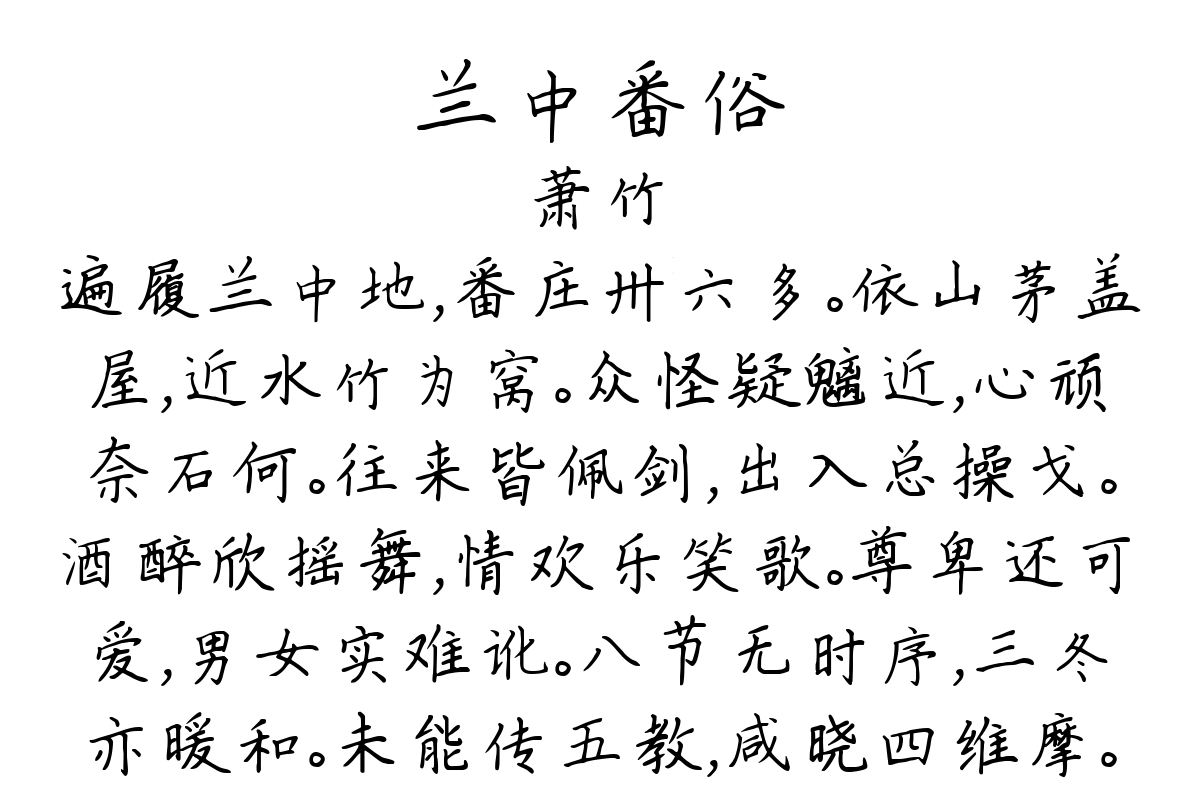 兰中番俗
萧竹
遍履兰中地,番庄卅六多。依山茅盖
屋,近水竹为窝。众怪疑魑近,心顽
奈石何。往来皆佩剑,出入总操戈。
酒醉欣摇舞,情欢乐笑歌。尊卑还可
爱,男女实难讹。八节无时序,三冬
亦暖和。未能传五教,咸晓四维摩。